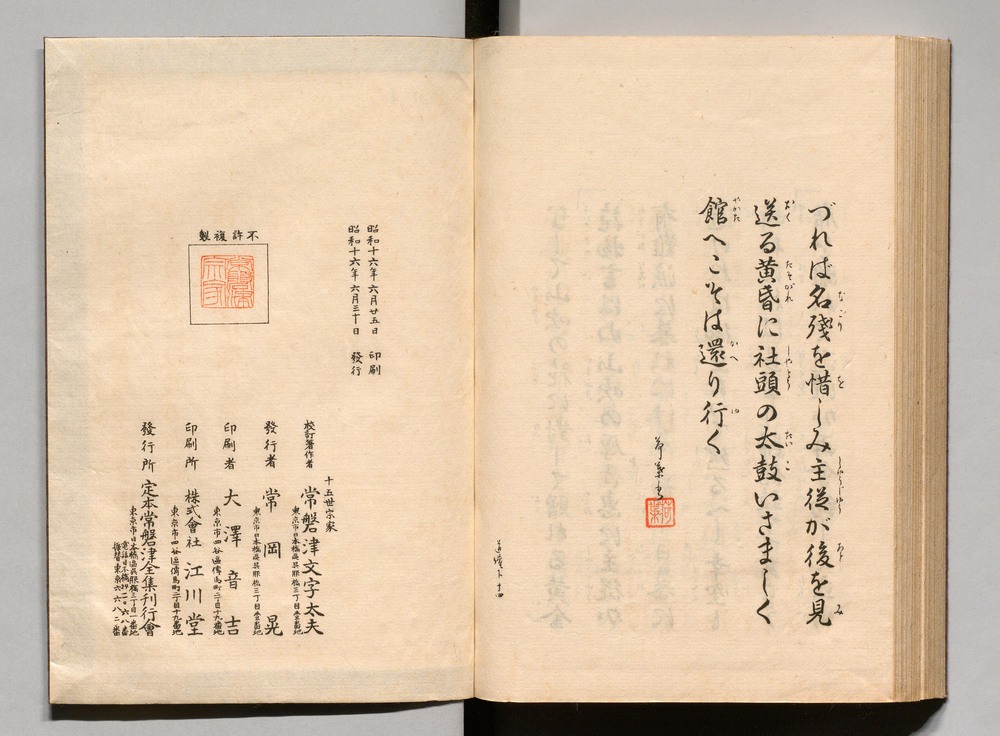 づれば名殘を惜しみ主從が後を見
送る黄昏に社頭の太鼓いさましく
館へこそは還り行く
昭和十六年六月廿五日 印刷
昭和十六年六月三十日 發行
不許複製
十五世宗家
校訂著作者 常磐津文字太夫
東京市日本橋區吳服橋三丁目壹番地
發行者 常岡晃
東京市日本橋區吳服橋三丁目壹番地
印刷者 大澤音吉
東京市四谷區傳馬町二丁目十九番地
印刷所 株式會社 江川堂
東京市四谷區傳馬町二丁目十九番地
發行所 定本常磐津全集刊行會
東京市日本橋區吳服橋三丁目一番地